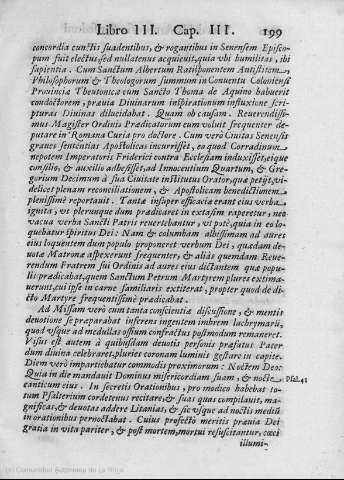 Libro III. Cap. III. 199
concordia cunctis suadentibus, & rogantibus in Senensem Episco-
pum fuit electus, sed nullatenus acquieuit, quia vbi humilitas, ibi
sapientia. Cum Sanctum Albertum Ratisponensem Antistitem
Philosophorum & Theologorum summum in Conuentu Coloniensi
Prouincia Theutonica cum Sancto Thoma de Aquino habuerit
condoctorem, prauia Diuinarum inspirationum influxione scri-
pturas Diuinas dilucidabat. Quam ob causam. Reuerendissi-
mus Magister Ordinis Prædicatorium eum voluit frequenter de-
putare in Romana Curia pro doctore. Cum verò Ciuitas Senensis
graues sententias Apostolicas incurrisset, eo quod Corradinum
nepotem Imperatoris Friderici contra Ecclesiam induxisset, eique
consilio, & auxilio adhesisset, ad Innocentium Quartum, & Gre-
gorium Decimum à sua Ciuitate institutus Orator, quæ petijt, vi-
delicet plenam reconciliationem, & Apostolicam benedictionem
plenissimè reportauit. Tantæ insuper efficacia erant eius verba
ignita, vt plerunque dum prædicaret in extasim raperetur, neo
vacua verba Sancti Patris reuertebantur, vt potè, quia in eo lo-
quebatur spiritus Dei: Nam & columbam albissimam ad aures
eius loquentem dum populo proponeret verbum Dei, quædam de-
uota Matrona aspexerunt frequenter, & aliàs quemdam Reue-
rendum Fratrem sui Ordinis ad aures eius dictantem quæ popu-
lis prædicabat, quem Sanctum Petrum Martyrem plures existima-
uerunt, cui ipse in carne familiaris extiterat, propter quod de di-
cto Martyre frequentissimè prædicabat.
Ad Missam verò cum tanta conscientiæ discussione, & mentis
deuotione se præparabat inferens ingentem imbrem lachrymarū,
quod vsque ad medullas ossium confractus postmodum remaneret.
Visus est autem à quibusdam deuotis personis præfatus Pater
dum diuina celebraret, pluries coronam luminis gestare in capite.
Diem verò impartiebatur commodis proximorum: Noctem Deo:
Quia in die mandauit Dominus misericordiam suam, & nocte Psal. 41
canticum eius. In secretis Orationibus, pro modico habebat to-
tum Psalterium cordetenus recitare, & suas quas compilauit, ma-
gnificas, & deuotas addere Litanias, & sic vsque ad noctis mediū
in orationibus pernoctabat. Cuius profectò meritis præuia Dei
gratia in vita pariter, & post mortem, mortui resuscitantur, cæci
illumi-
(c) Comunidad Autónoma de La Rioja